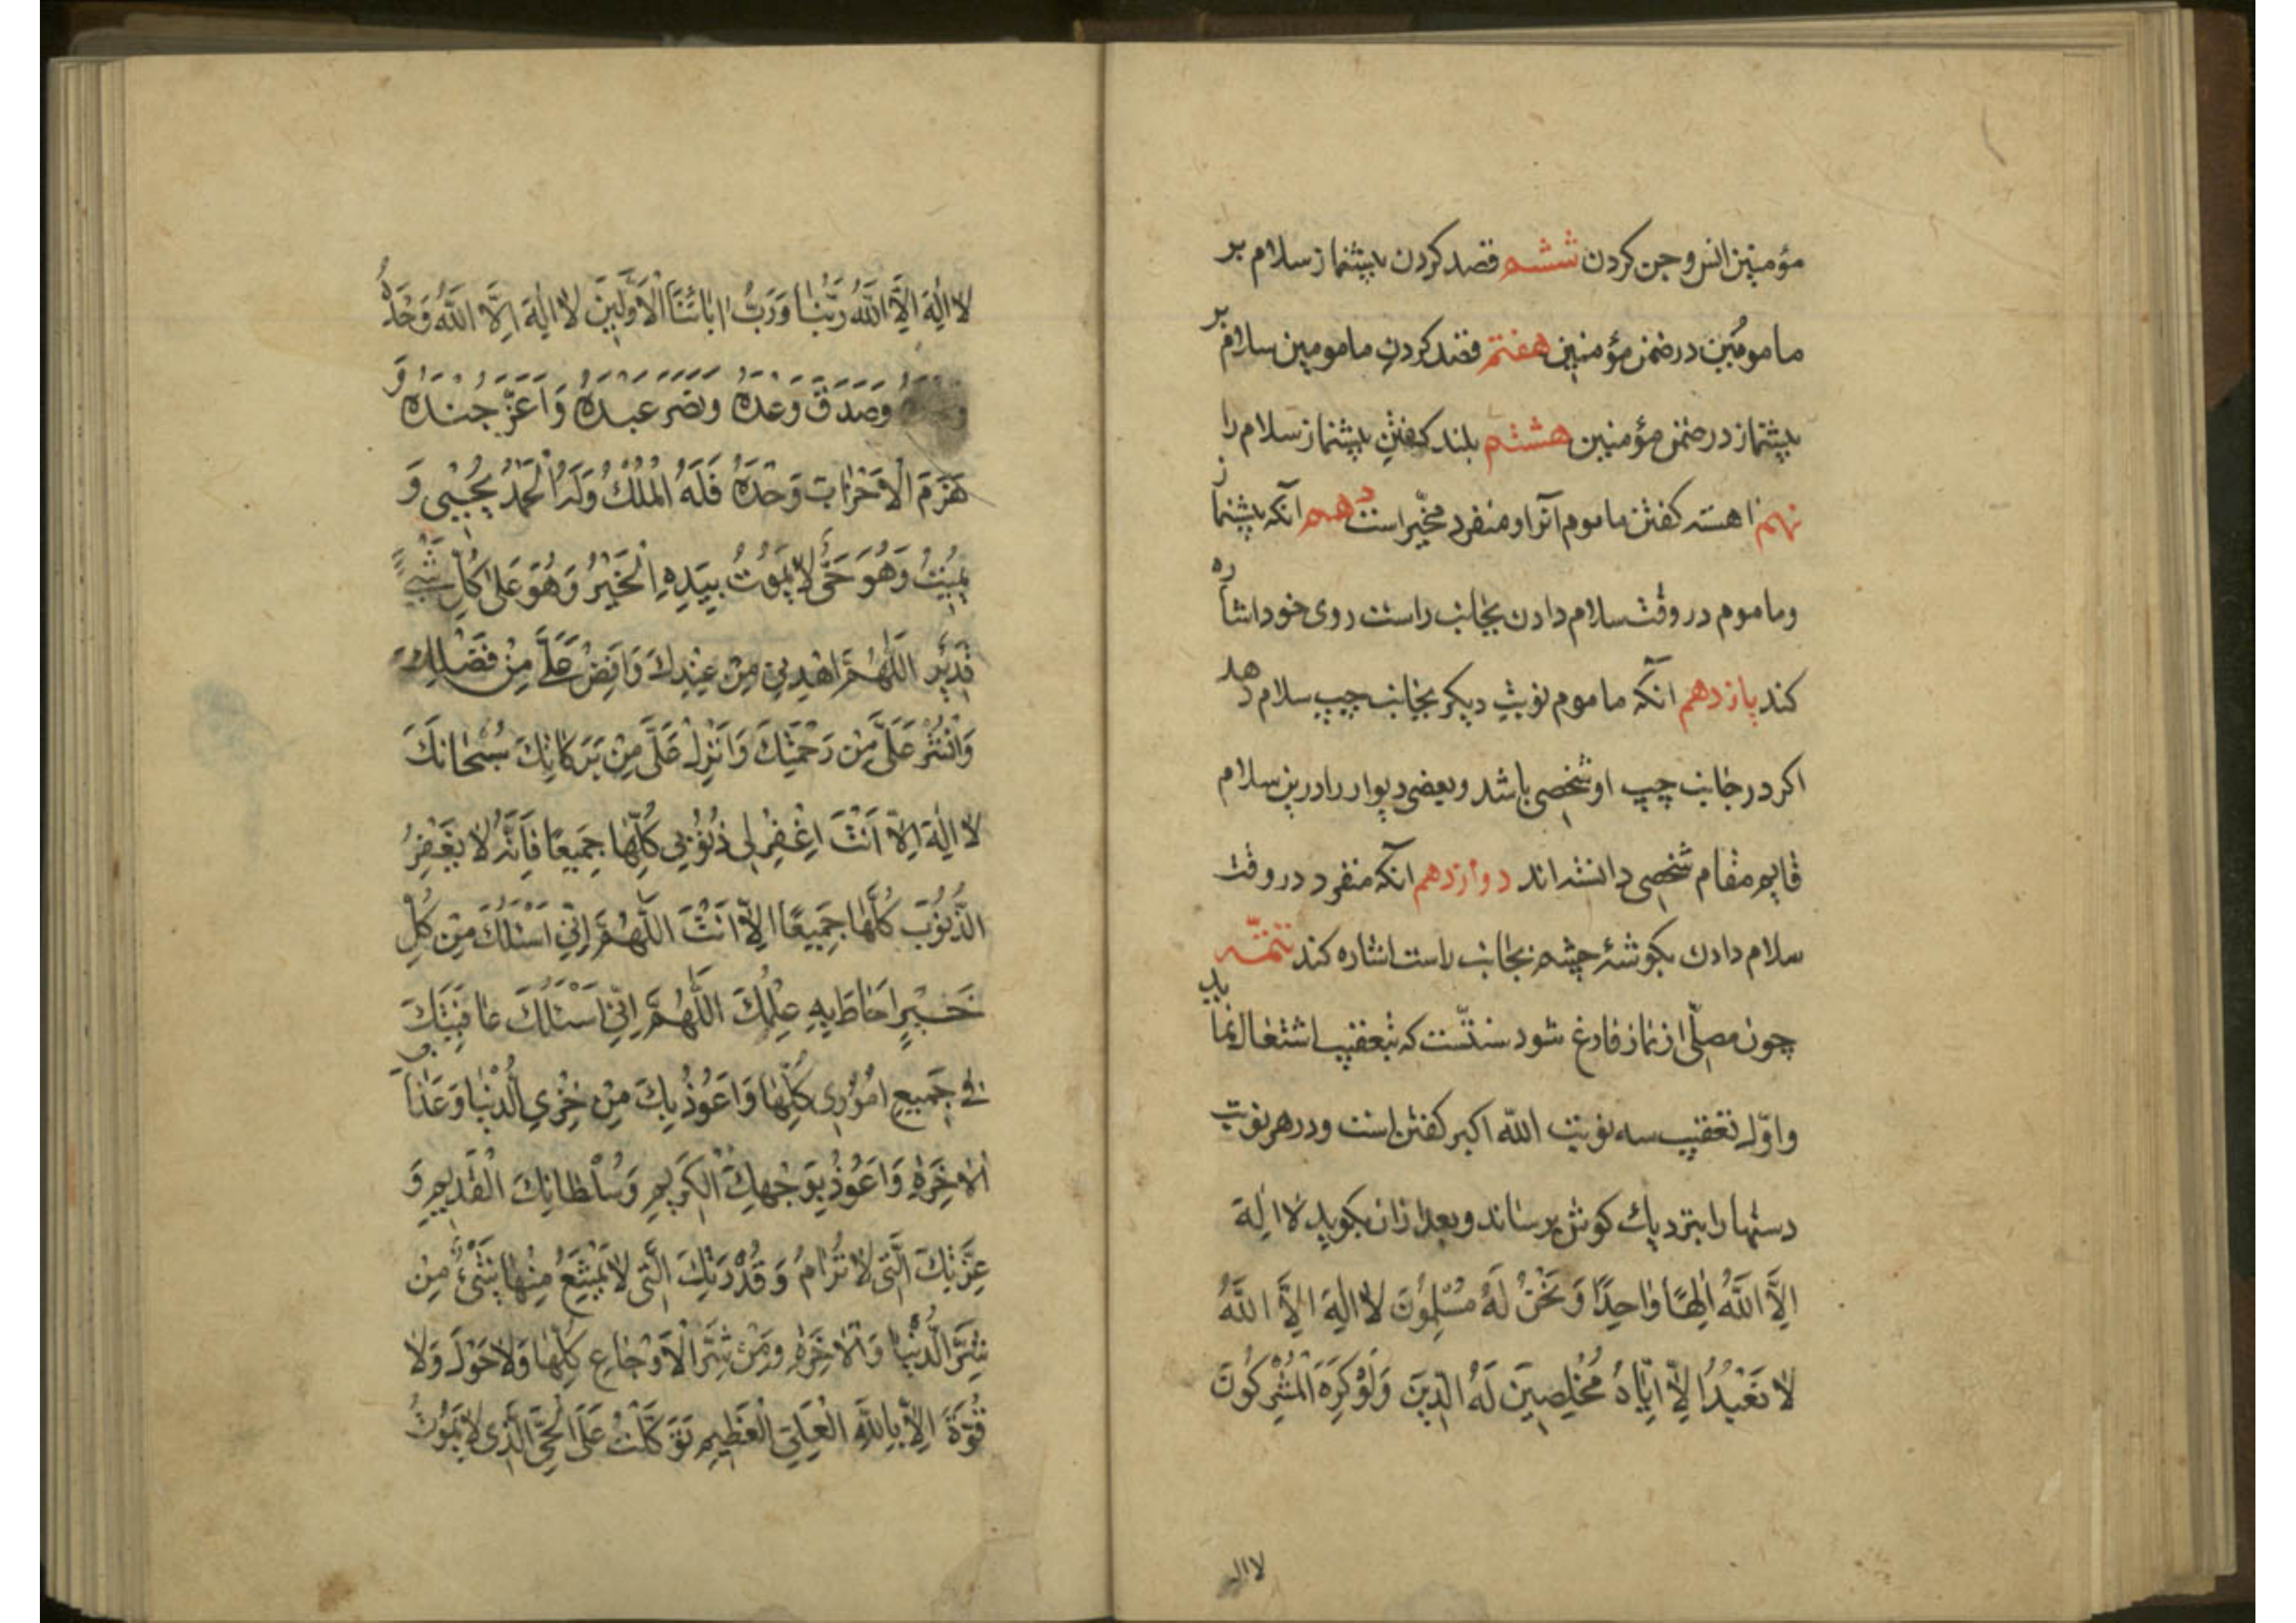 مؤمنین انس و جن کردن ششم قصد کردن پیشنماز سلام بر
مامومین در ضمن مؤمنین هفتم قصد کردن مامومین سلام بر
پیشنماز در ضمن مؤمنین هشتم بلند کفتن پیشنماز سلام را
نهم اهسته کفتن ماموم آنرا و منفرد مخیّر است دهم آنکه پیشنماز
و ماموم در وقت سلام دادن بجانب راست روی خود اشاره
کند یازدهم آنکه ماموم نوبت دیکر بجانب چپ سلام دهد
اکر در جانب چپ او شخصی باشد و بعضی دیوار را درین سلام
قایم مقام شخصی دانسته اند دوازدهم آنکه منفرد در وقت
سلام دادن بکوشهٔ چشم بجانب راست اشاره کند تتمّه
چون مصلّی از نماز فارغ شود سنّتست که بتعقیب اشتغال نماید
و اوّل تعقیب سه نوبت اللّه اکبر کفتن است و در هر نوبت
دستها را بنزدیك کوش برساند و بعد از ان بکوید لا اِلٰهَ
اِلَّا اللّٰهُ اِلٰهًا وٰاحِدًا وَ نَحْنُ لَهُ مُسْلِمُونَ لا اِلٰهَ اِلَّا اللّٰهُ
لا نَعْبُدُ اِلّا اِیّاهُ مُخْلِصِینَ لَهُ الدِّینَ وَلَوْ کَرِهَ الْمُشْرِکُونَ
لا اله
لا اِلٰهَ اِلَّا اللّٰهُ رَبُّنٰا وَرَبُّ اٰبٰائِنَا الْاَوَّلِینَ لا اِلٰهَ اِلَّا اللّٰهُ وَحْدَهُ
وَصَدَقَ وَعْدَهُ وَنَصَرَ عَبْدَهُ وَاَعَزَّ جُنْدَهُ وَ
هَزَمَ الْاَحْزٰابَ وَحْدَهُ فَلَهُ الْمُلْكُ وَلَهُ الْحَمْدُ یُحْیِی وَ
یُمِیتُ وَهُوَ حَیٌّ لا یَمُوتُ بِیَدِهِ الْخَیْرُ وَهُوَ عَلیٰ کُلِّ شَیْءٍ
قَدِیرٌ اَللّٰهُمَّ اهْدِنِی مِنْ عِنْدِكَ وَاَفِضْ عَلَیَّ مِنْ فَضْلِكَ
وَانْشُرْ عَلَیَّ مِنْ رَحْمَتِكَ وَاَنْزِلْ عَلَیَّ مِنْ بَرَکٰاتِكَ سُبْحٰانَكَ
لا اِلٰهَ اِلّا اَنْتَ اِغْفِرْ لِی ذُنُوبِی کُلَّهٰا جَمِیعًا فَاِنَّهُ لا یَغْفِرُ
الذُّنُوبَ کُلَّهٰا جَمِیعًا اِلّا اَنْتَ اَللّٰهُمَّ اِنِّی اَسْئَلُكَ مِنْ کُلِّ
خَیْرٍ اَحٰاطَ بِهِ عِلْمُكَ اَللّٰهُمَّ اِنِّی اَسْئَلُكَ عٰافِیَتَكَ
فِی جَمِیعِ اُمُورِی کُلِّهٰا وَاَعُوذُ بِكَ مِنْ خِزْیِ الدُّنْیٰا وَعَذٰابِ
الْاٰخِرَةِ وَاَعُوذُ بِوَجْهِكَ الْکَرِیمِ وَسُلْطٰانِكَ الْقَدِیمِ وَ
عِزَّتِكَ الَّتِی لا تُرٰامُ وَقُدْرَتِكَ الَّتِی لا یَمْتَنِعُ مِنْهٰا شَیْءٌ مِنْ
شَرِّ الدُّنْیٰا وَالْاٰخِرَةِ وَمِنْ شَرِّ الْاَوْجٰاعِ کُلِّهٰا وَلا حَوْلَ وَلا
قُوَّةَ اِلّا بِاللّٰهِ الْعَلِیِّ الْعَظِیمِ تَوَکَّلْتُ عَلَی الْحَیِّ الَّذِی لا یَمُوتُ